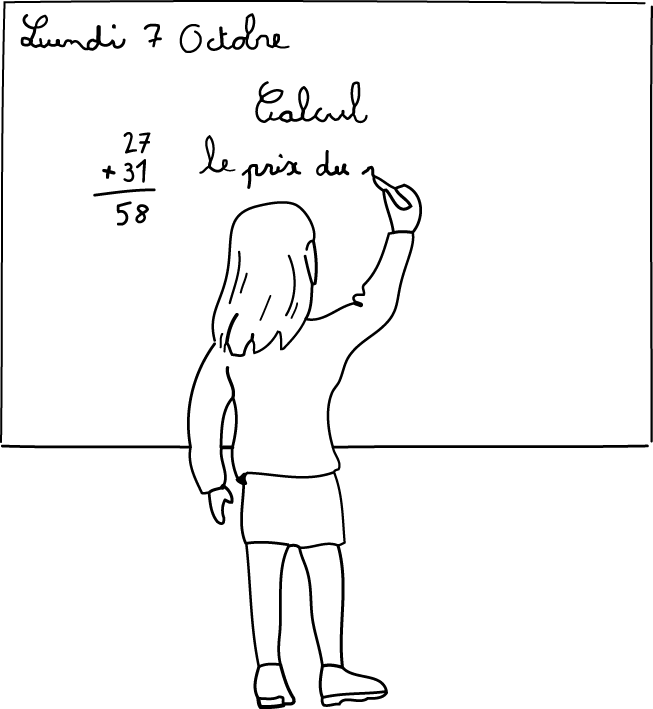 Lundi 7 Octobre
Calcul
27
+ 31
58
le prix du